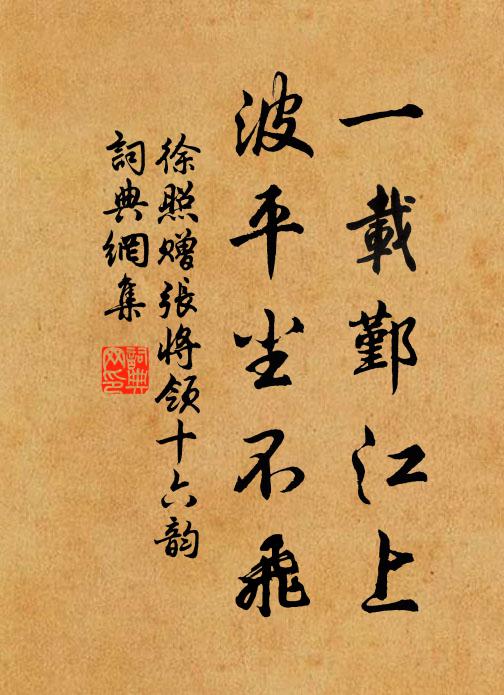 一載鄞江上
波平尘不飛
徐照贈張将领十六韵
詞典網集
詞典網印